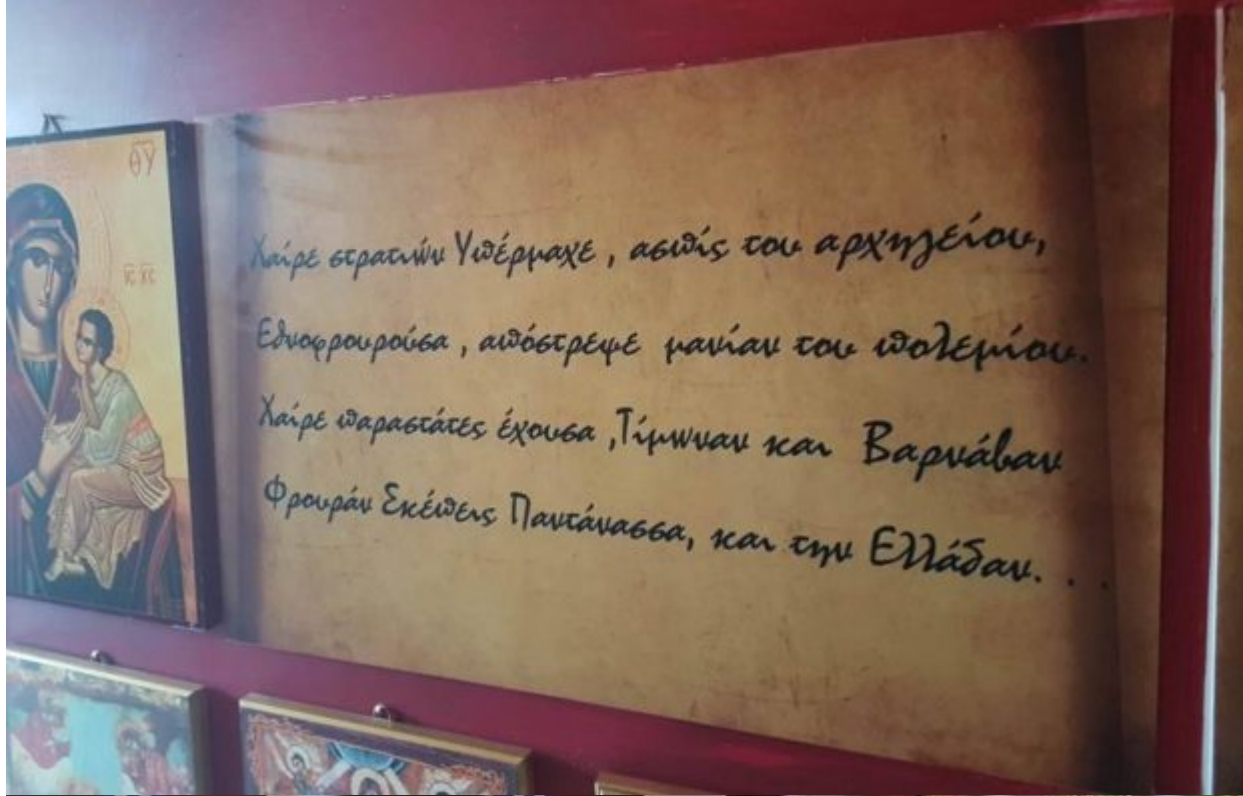 ΘΥ
ΙC ΧC
Χαίρε στρατιών Υπέρμαχε, ασπίς του αρχηγείου,
Εθνοφρουρούσα, απόστρεψε μανίαν του πολεμίου.
Χαίρε παραστάτες έχουσα, Τίμωναν και Βαρνάβαν
Φρουράν Σκέπεις Παντάνασσα, και την Ελλάδαν. . .